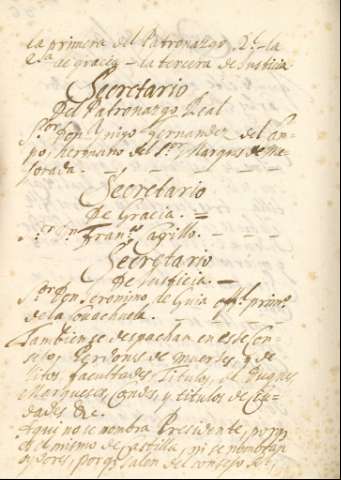 la primera del Patronazgo Rl. - la
2da de gracia - la tercera de Justicia
Secretario
Del Patronazgo Real
Sor. Don Yñigo Fernandez del Can-
po, hermano del Sr. Marques de Me-
jorada.
Secretario
De Gracia. =
Sr. Dn. Franco. Castillo.
Secretario
De Justicia. =
Sor. Don Geronimo de Guia offl. primo.
de la Covachuela.
Tambien se despachan en este Con-
sejo, Perdones de Muertes, y de-
litos, facultades, Titulos de Duques
Marqueses, Condes, y titulos de Ciu-
dades &c.
Aqui no se nombra Presidente, porq.
es el mismo de Castilla, ni se nombran
oydores, porq. salen del consejo Rl.